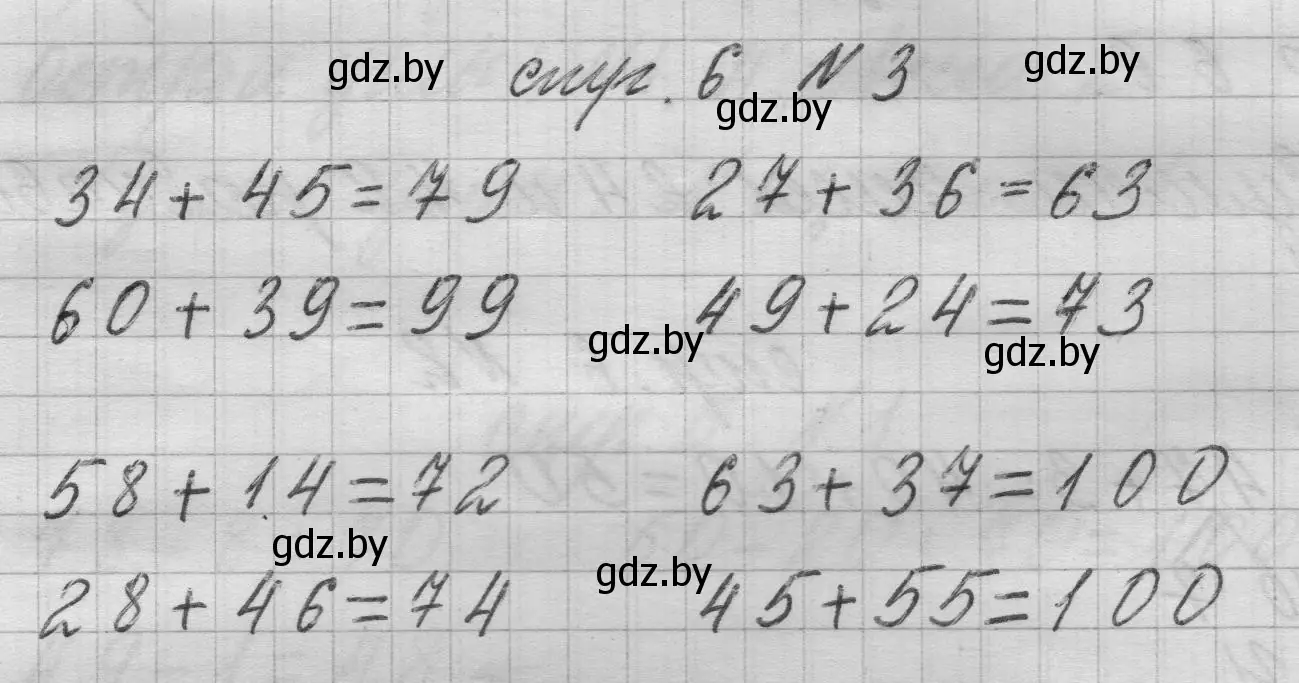 gdz.by стр. 6 N 3 gdz.by
gdz.by
34 + 45 = 79 27 + 36 = 63
60 + 39 = 99 49 + 24 = 73
gdz.by gdz.by
58 + 14 = 72 63 + 37 = 100
gdz.by gdz.by
28 + 46 = 74 45 + 55 = 100